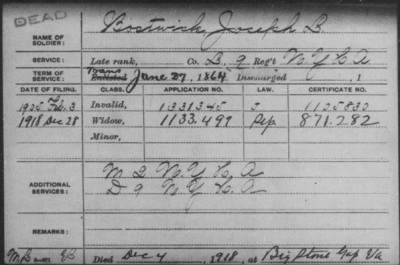 DEAD
NAME OF SOLDIER: Bostwick, Joseph B.
SERVICE: Late rank, Co. B, 9 Reg't N Y C A
TERM OF SERVICE: Trans Enlisted June 27, 1864 Discharged , 1
DATE OF FILING. CLASS. APPLICATION NO. LAW. CERTIFICATE NO.
1905 Feb. 3 Invalid, 1331345 J 1105830
1918 Dec 28 Widow, 1133.499 871.282
Minor,
ADDITIONAL SERVICES: M 2 N.Y. C. A
D 9 N Y C. A
REMARKS:
Died Dec 4, 1918, at Big Stone Gap Va